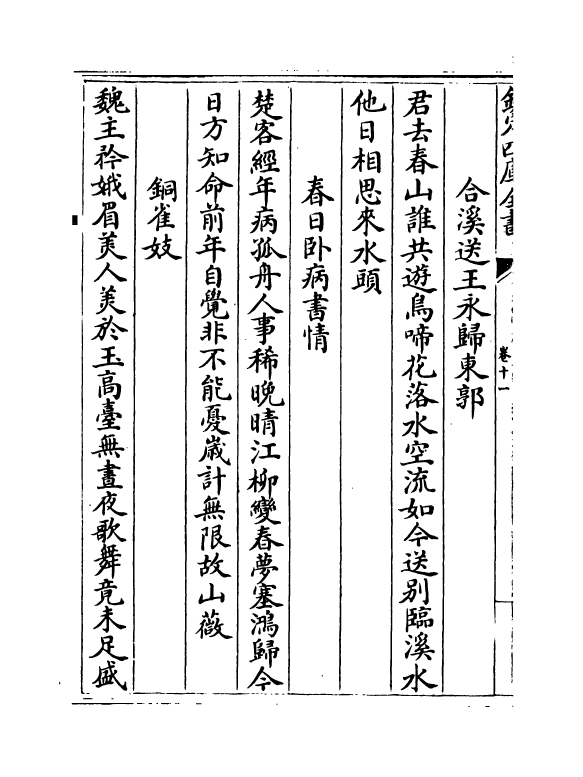 欽定四庫全書
卷十一
合溪送王永歸東郭
君去春山誰共遊鳥啼花落水空流如今送别臨溪水
他日相思來水頭
春日卧病書情
楚客經年病孤舟人事稀晚晴江柳變春夢塞鴻歸今
日方知命前年自覺非不能憂歲計無限故山薇
銅雀妓
魏主矜娥眉美人美於玉高臺無晝夜歌舞竟未足盛